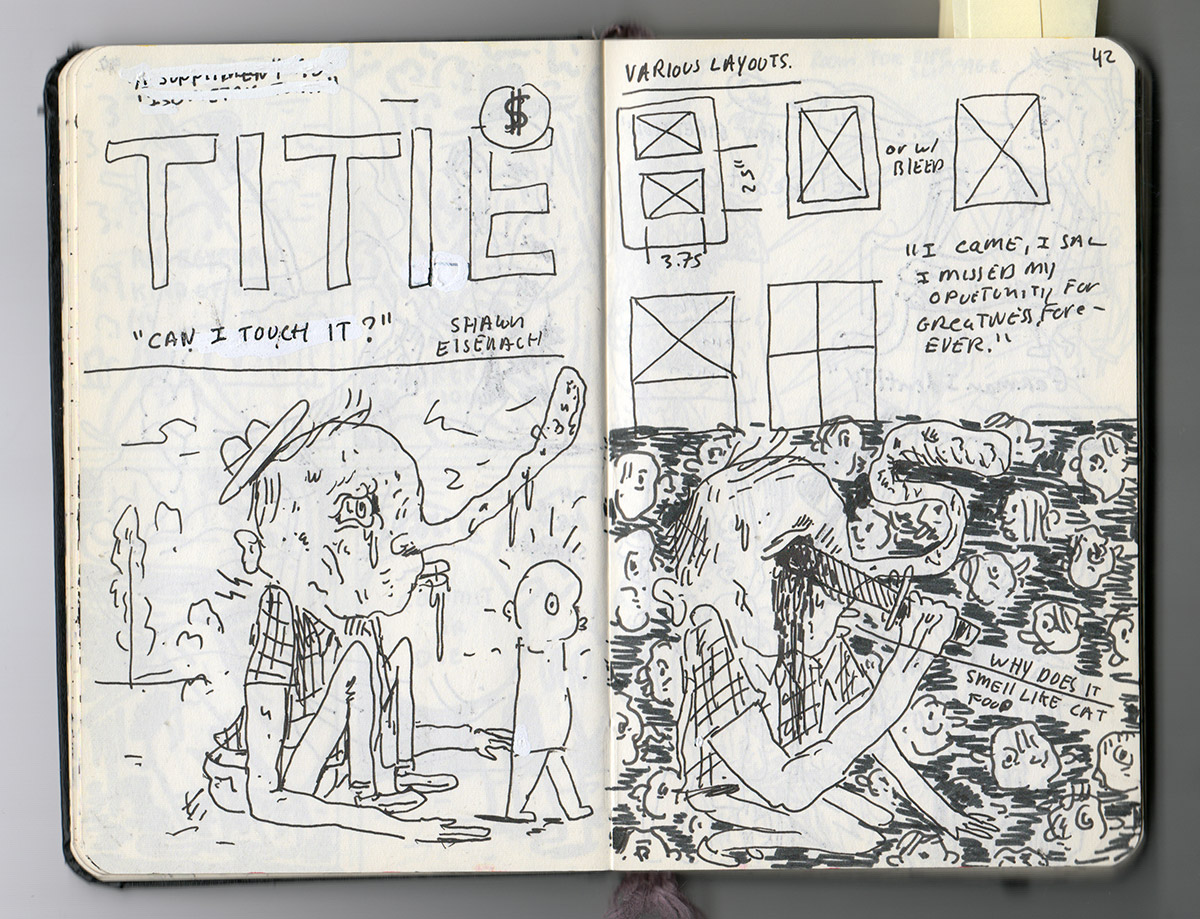 A SUPPLIMENT TO
$
TITLE
"CAN I TOUCH IT?"
SHAWN
EISENACH
2
42
VARIOUS LAYOUTS.
2.5"
3.75
OR W/
BLEED
"I CAME, I SAL
I MISSED MY
OPUETUNITY FOR
GREATNESS, FORE-
EVER."
WHY DOES IT
SMELL LIKE CAT
FOOD